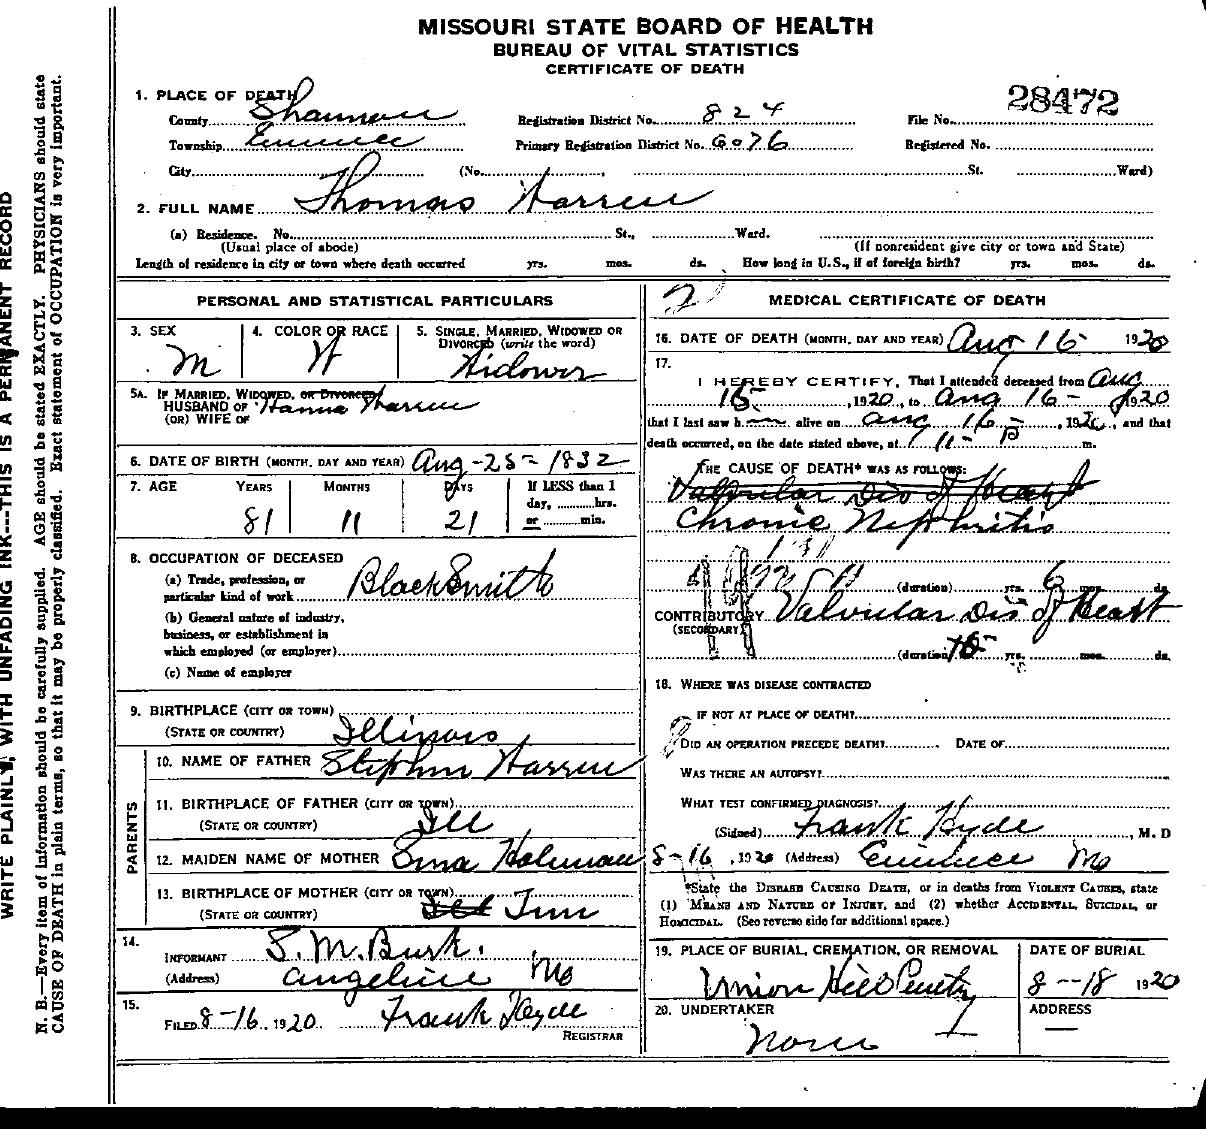 MISSOURI STATE BOARD OF HEALTH
BUREAU OF VITAL STATISTICS
CERTIFICATE OF DEATH
28472
1. PLACE OF DEATH
County Shannon Registration District No. 824 File No.
Township Eminence Primary Registration District No. 6076 Registered No.
City (No. , St. Ward)
2. FULL NAME Thomas Warren
(a) Residence. No. St., Ward.
(Usual place of abode) (If nonresident give city or town and State)
Length of residence in city or town where death occurred yrs. mos. ds. How long in U.S., if of foreign birth? yrs. mos. ds.
PERSONAL AND STATISTICAL PARTICULARS
3. SEX 4. COLOR OR RACE 5. SINGLE, MARRIED, WIDOWED OR DIVORCED (write the word)
M W Widower
5A. IF MARRIED, WIDOWED, OR DIVORCED
HUSBAND OF Warren
(OR) WIFE OF
6. DATE OF BIRTH (MONTH, DAY AND YEAR) Aug-25-1832
7. AGE YEARS MONTHS DAYS If LESS than 1
day, hrs.
or min.
81 11 21
8. OCCUPATION OF DECEASED
(a) Trade, profession, or
particular kind of work BlackSmith
(b) General nature of industry,
business, or establishment in
which employed (or employer)
(c) Name of employer
9. BIRTHPLACE (CITY OR TOWN)
(STATE OR COUNTRY) Illinois
PARENTS
10. NAME OF FATHER Stephen Warren
11. BIRTHPLACE OF FATHER (CITY OR TOWN)
(STATE OR COUNTRY) Ill
12. MAIDEN NAME OF MOTHER Holman
13. BIRTHPLACE OF MOTHER (CITY OR TOWN)
(STATE OR COUNTRY) Ill Tenn
14.
INFORMANT S. M. Burk.
(Address) Angeline Mo
15.
FILED 8-16, 1920 Frank Hyde
REGISTRAR
MEDICAL CERTIFICATE OF DEATH
16. DATE OF DEATH (MONTH, DAY AND YEAR) Aug 16 1920
17.
I HEREBY CERTIFY, That I attended deceased from Aug
15, 1920, to Aug 16-, 1920
that I last saw h alive on Aug 16, 1920, and that
death occurred, on the date stated above, at 11- P m.
THE CAUSE OF DEATH* WAS AS FOLLOWS:
Valvular Dis of Heart
Chronic Nephritis
131
(duration) yrs. 6 mos. ds.
CONTRIBUTORY Valvular Dis of Heart
(SECONDARY)
(duration) yrs. mos. ds.
18. WHERE WAS DISEASE CONTRACTED
IF NOT AT PLACE OF DEATH?
DID AN OPERATION PRECEDE DEATH? DATE OF
WAS THERE AN AUTOPSY?
WHAT TEST CONFIRMED DIAGNOSIS?
(Signed) Frank Hyde, M. D
8-16, 1920 (Address) Eminence Mo
*State the DISEASE CAUSING DEATH, or in deaths from VIOLENT CAUSES, state
(1) MEANS AND NATURE OF INJURY, and (2) whether ACCIDENTAL, SUICIDAL, or
HOMICIDAL. (See reverse side for additional space.)
19. PLACE OF BURIAL, CREMATION, OR REMOVAL DATE OF BURIAL
Union Hill 8--18 1920
20. UNDERTAKER ADDRESS
None
WRITE PLAINLY, WITH UNFADING INK---THIS IS A PERMANENT RECORD
N. B.—Every item of information should be carefully supplied. AGE should be stated EXACTLY. PHYSICIANS should state
CAUSE OF DEATH in plain terms, so that it may be properly classified. Exact statement of OCCUPATION is very important.